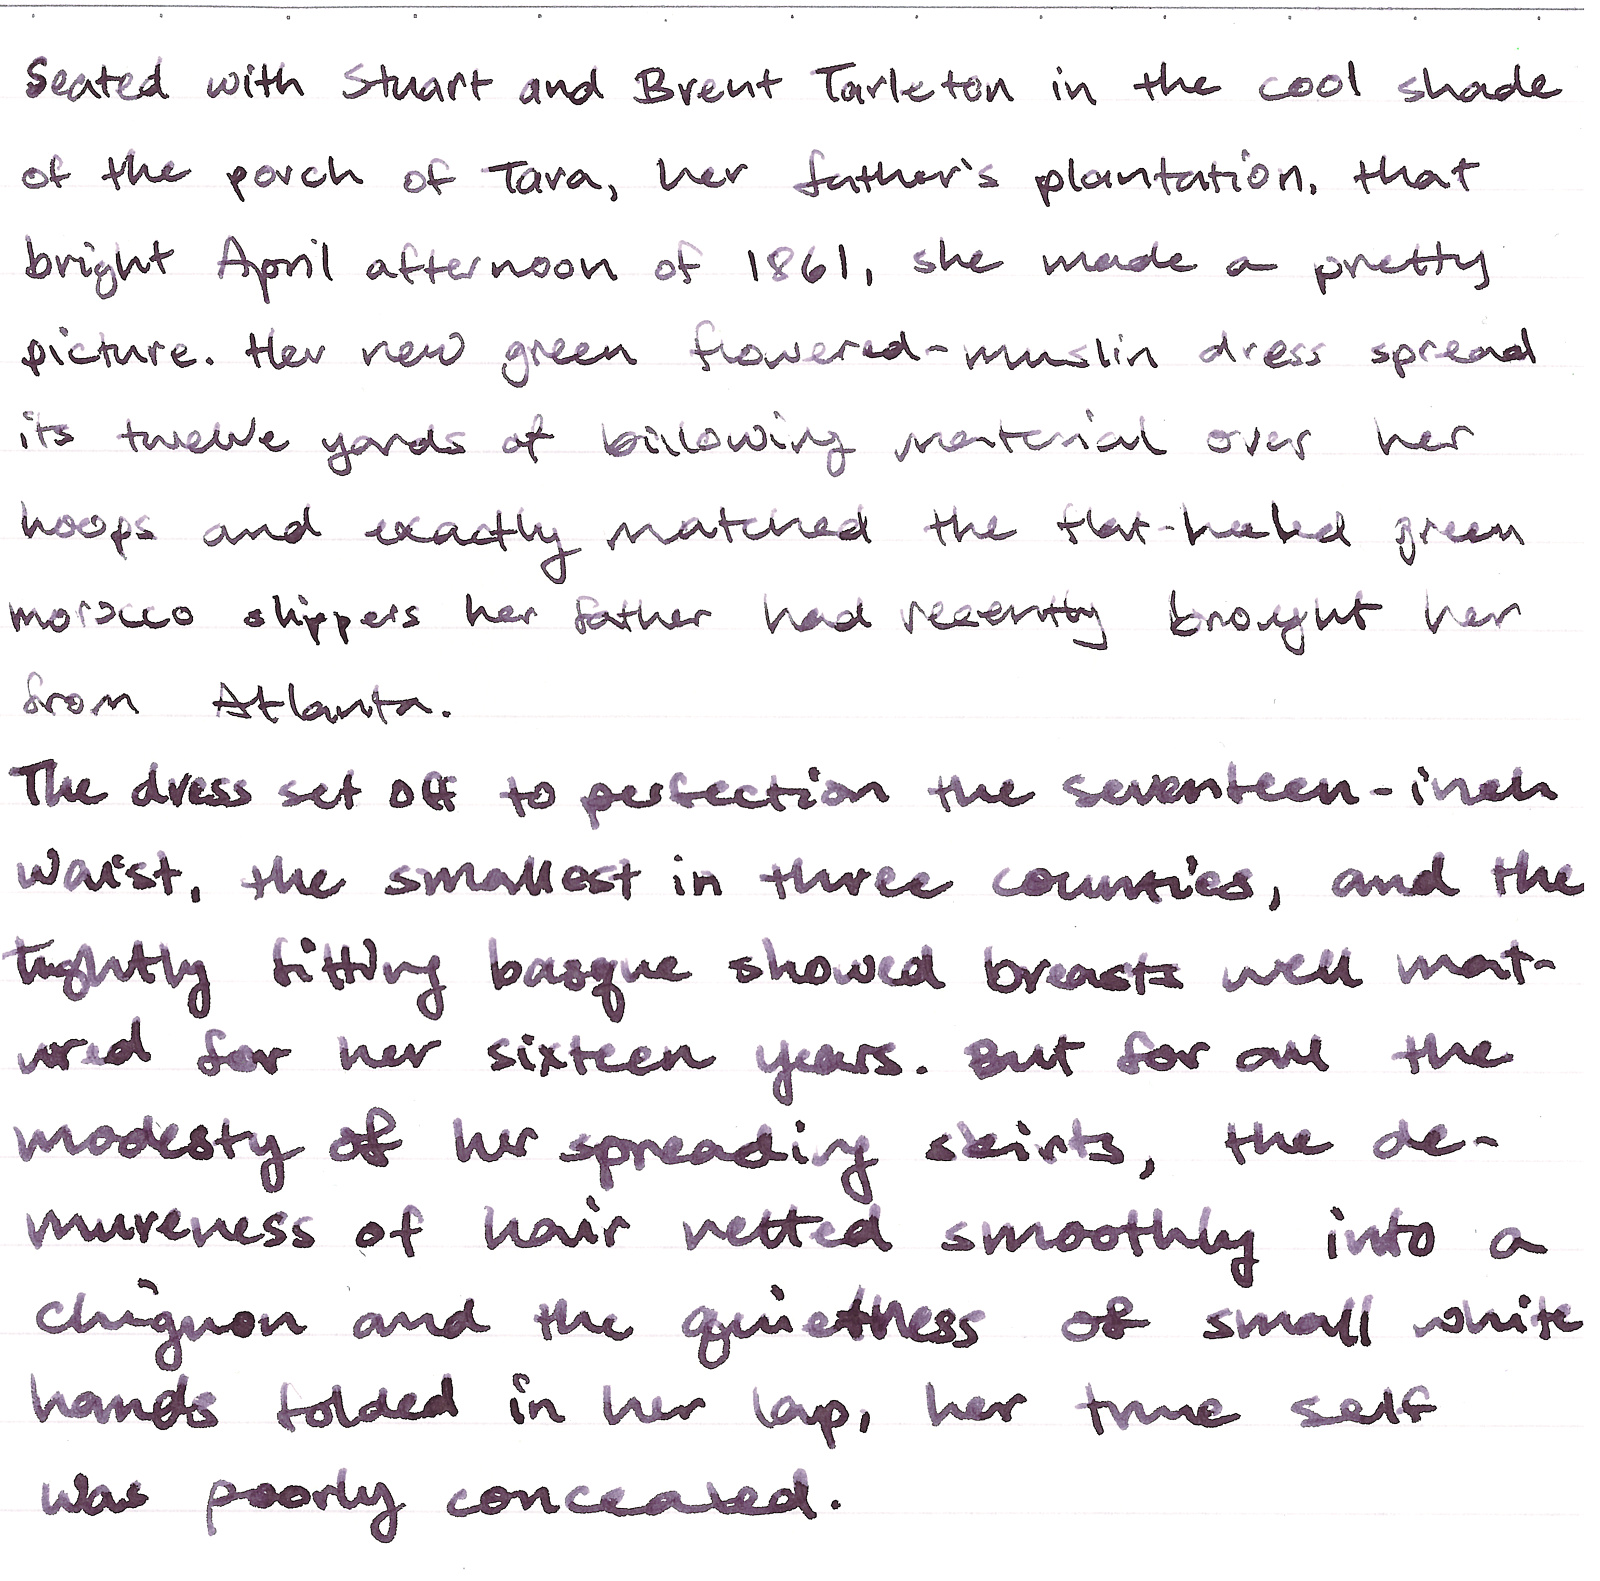 Seated with Stuart and Brent Tarleton in the cool shade
of the porch of Tara, her father's plantation, that
bright April afternoon of 1861, she made a pretty
picture. Her new green flowered-muslin dress spread
its twelve yards of billowing material over her
hoops and exactly matched the flat-heeled green
morocco slippers her father had recently brought her
from Atlanta.
The dress set off to perfection the seventeen-inch
waist, the smallest in three counties, and the
tightly fitting basque showed breasts well mat-
ured for her sixteen years. But for all the
modesty of her spreading skirts, the de-
mureness of hair netted smoothly into a
chignon and the quietness of small white
hands folded in her lap, her true self
was poorly concealed.